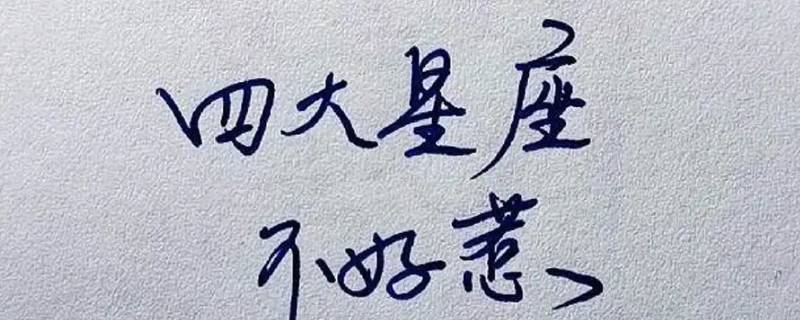 四大星座
不好惹